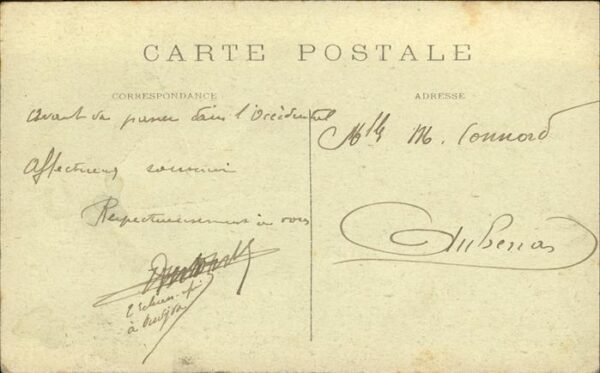 CARTE POSTALE
CORRESPONDANCE
ADRESSE
avant de passer dans l'Occidental
Affectueux souvenir
Respectueusement à vous
à
Mlle M. Connord
Aubenas